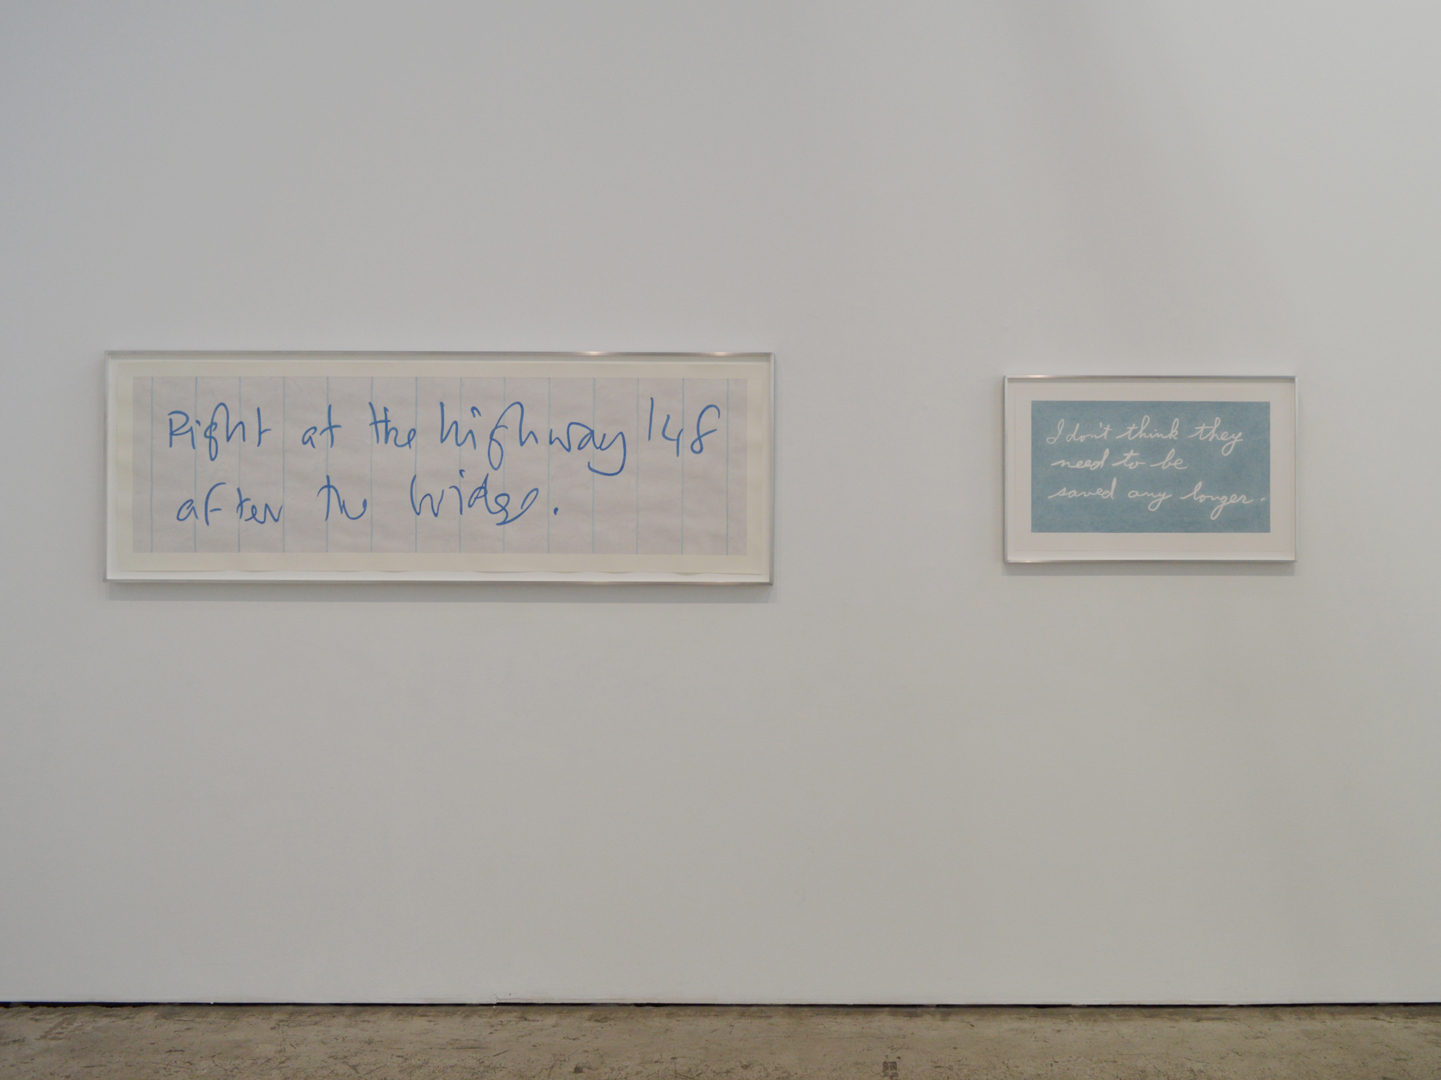 Right at the highway 148
after the bridge.
I don't think they
need to be
saved any longer.